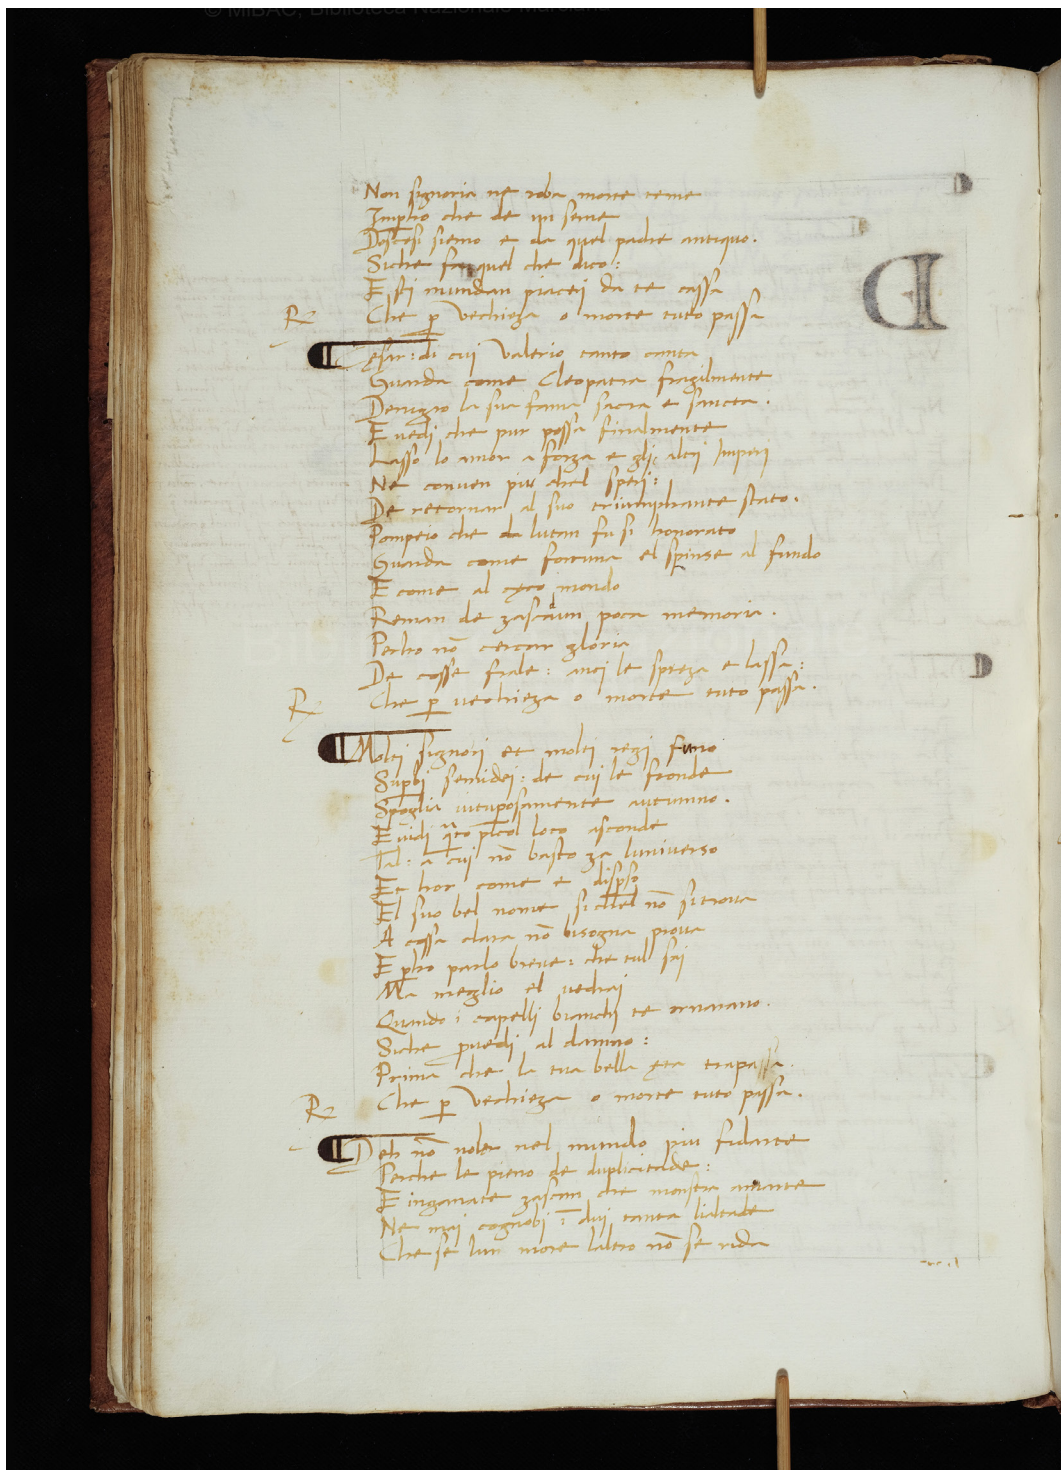 © MiBAC, Biblioteca Nazionale Marciana
Non signoria ne roba morte teme
Impho che de un seme
Descesi siemo e da quel padre antiquo.
Siche fa quel che dico:
E sti mundan piaceri da te cassa
Che p vechieza o morte tuto passa
Cesar: di cui Valerio tanto canta
Guarda come Cleopatra fragilmente
Denigro la sua fama sacra e sancta.
E vedi che pur possa finalmente
Lasso lo amor a forza e gli altri Imperi
Ne conven piu chel speri:
De retornar al suo triumphante stato.
Pompeio che da lutan fu si honorato
Guarda come fortuna el spinse al fundo
E come al cęco mondo
Reman de zascadun poca memoria.
Perho nō cercar gloria
De cosse frale: anci le spreza e lassa:
Che p vechieza o morte tuto passa.
Molti signori et molti regi funo
Supbi semidei: de cui le fronde
Spoglia vituposamente autumno.
E vidi loco asconde
Tal: a cui nō basto za luniverso
Et hor come e dispso
El suo bel nome si chel nō si trova
A cossa clara nō bisogna prova
E pho parlo breve: che tul sai
Ma meglio el vedrai
Quando i capelli bianchi te
Siche pvedi al damno:
Prima che la tua bella eta trapassa.
Che p vechieza o morte tuto passa.
Deh nō voler nel mundo piu fidarte
Perche le pieno de duplicitade:
E inganate zascun che monstra amarte
Ne mai cognobi ī dui tanta lialtade
Che se lun more laltro nō se rida